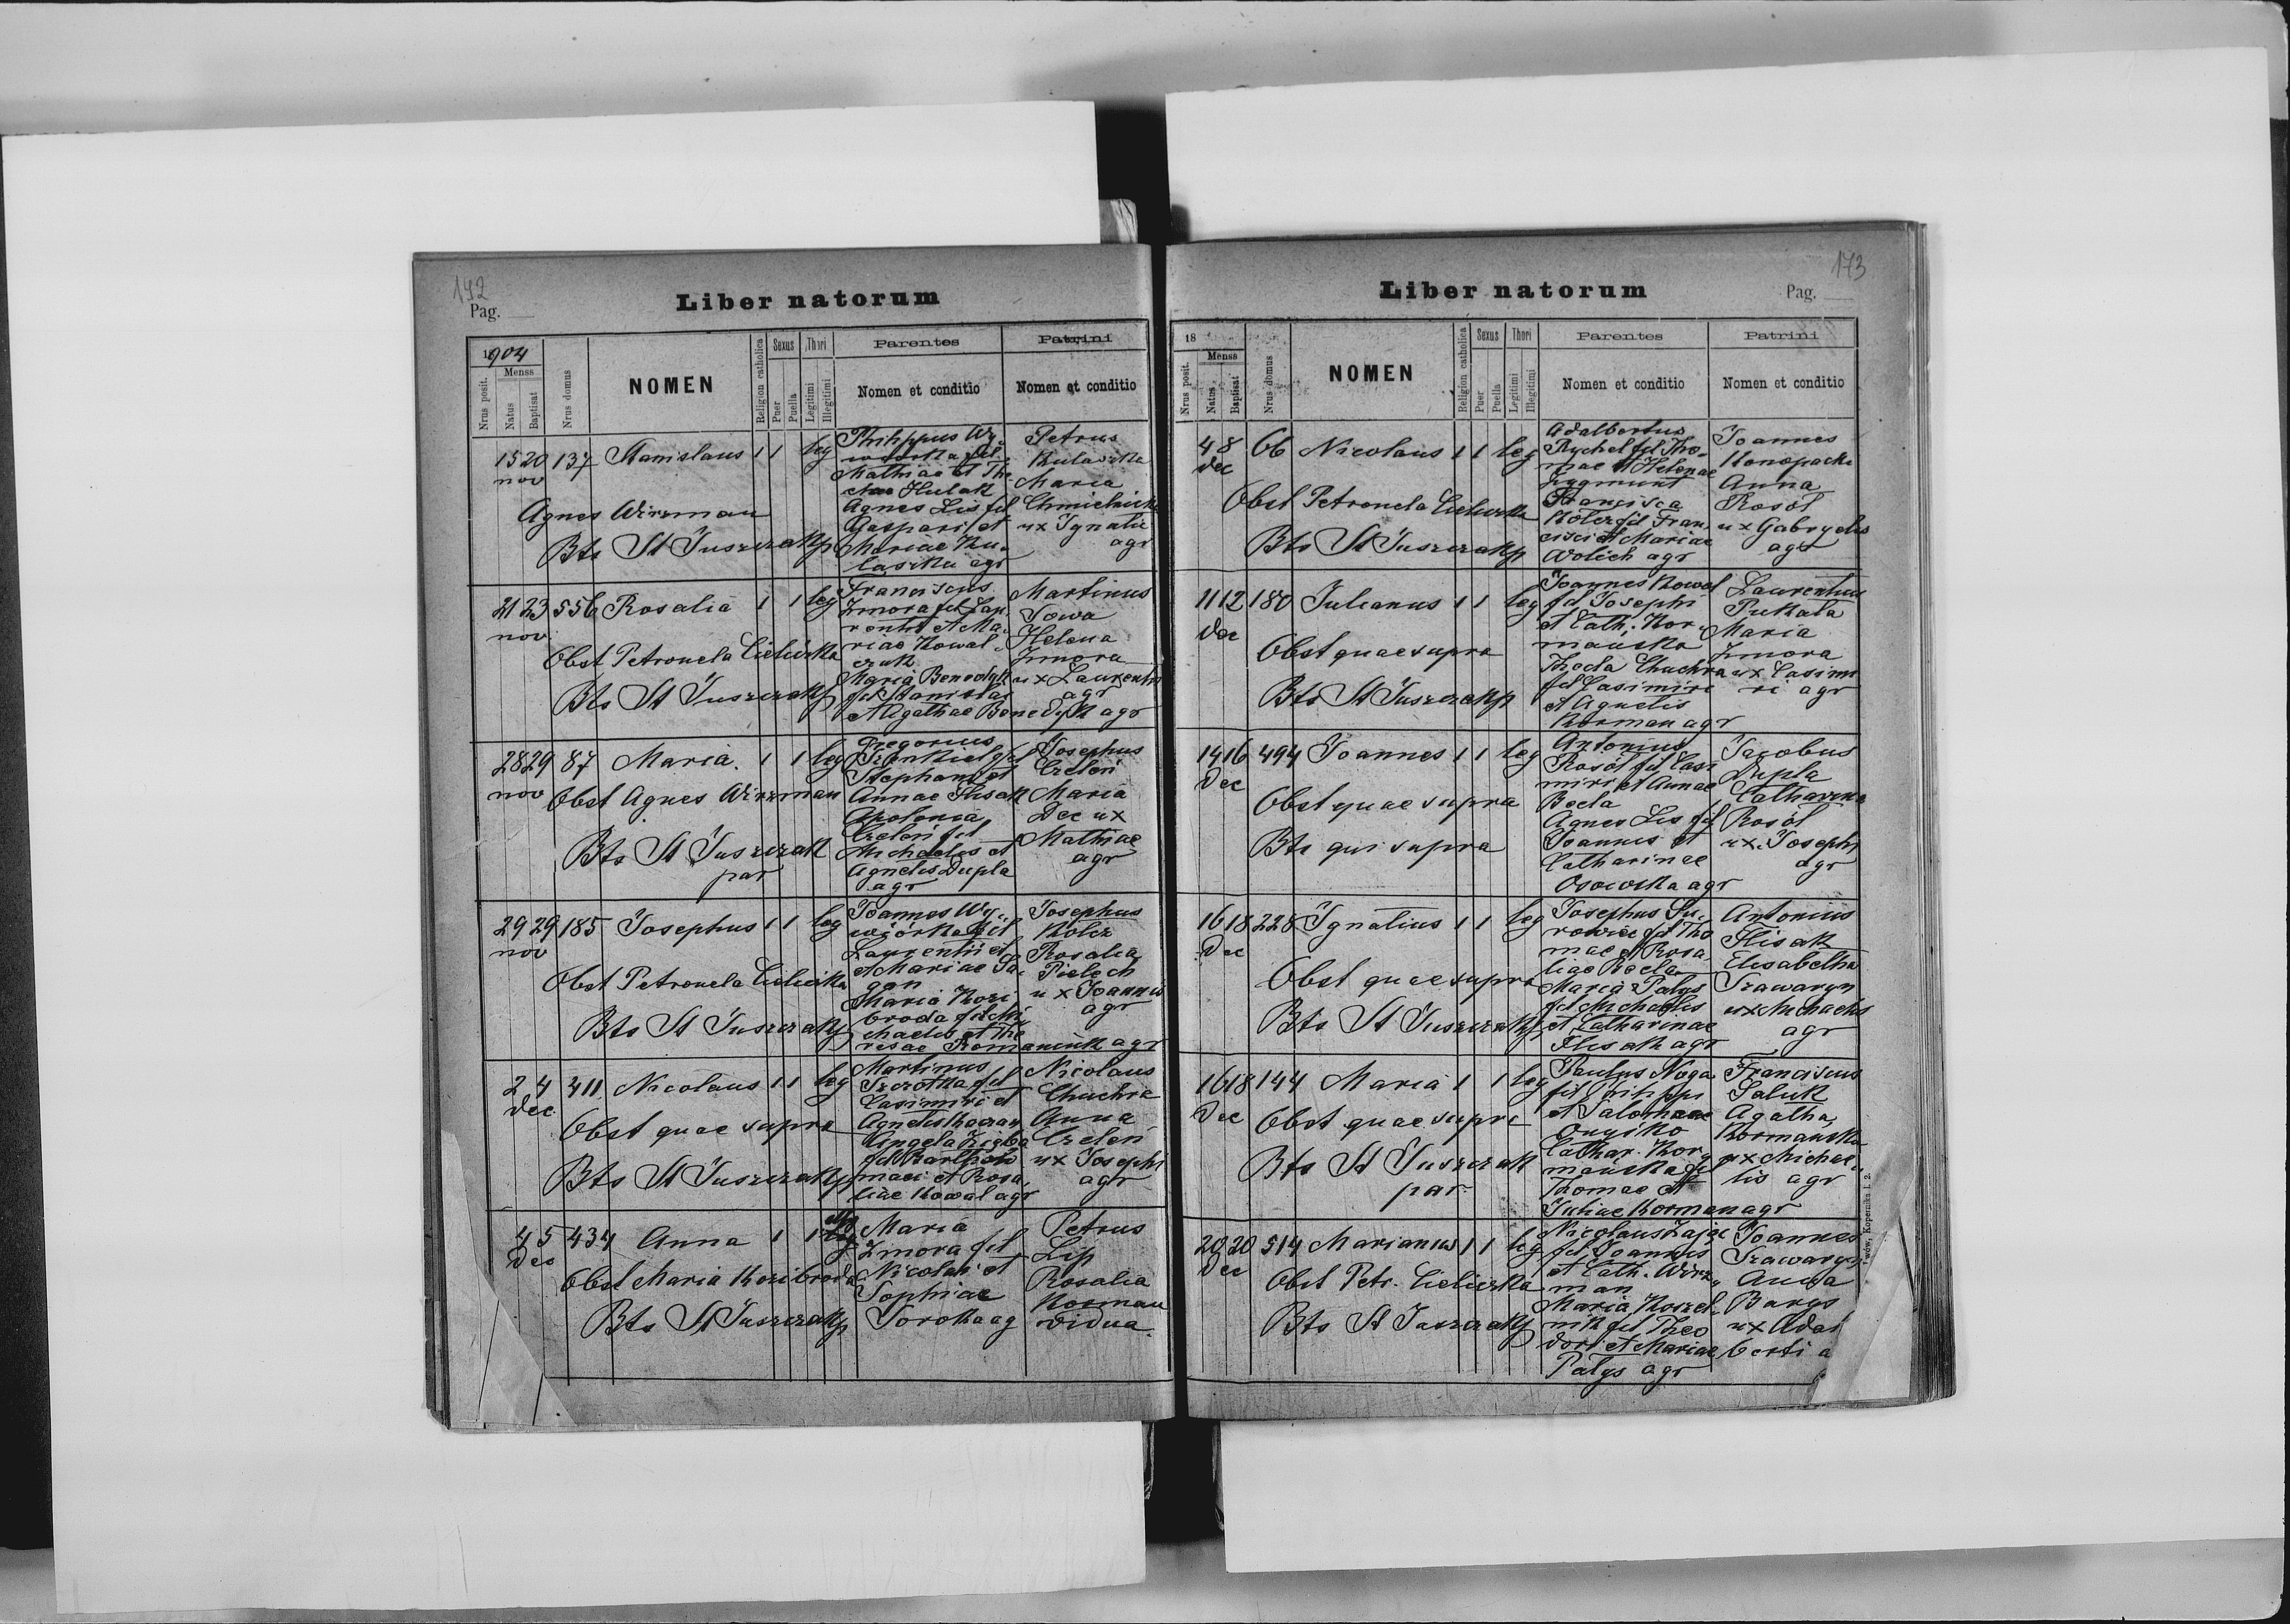 192
Pag.
Liber natorum
1904
Nrus posit.
Menss
Natus
Baptisat
Nrus domus
NOMEN
Religion catholica
Sexus
Puer
Puella
Thori
Legitimi
Illegitimi
Parentes
Nomen et conditio
Patrini
Nomen et conditio
15 20 137 Stanislaus 1 1 leg
nov
Agnes Wirzman
Bts St Juszczak p
Philippus Wy-
wiorka fil
Mathiae et The
Hulak
Agnes Lis fil
Gaspari et
Mariae Ku-
laszka agr
Petrus
Kulaszka
Maria
ux Ignatii
agr
21 23 556 Rosalia 1 1 leg
nov
Obst Petronela Cieliczka
Bts St Juszczak p
Franciscus
Zmora fil Lau
rentii et Ma-
riae Kowal-
czuk
Maria Benedyk
fil Stanislai
et Agathae Benedyk agr
Martinus
Sowa
Helena
Zmora
ux Laurentii
agr
28 29 87 Maria 1 1 leg
nov
Obst Agnes Wirzman
Bts St Juszczak
par
Gregorius
fil
Stephani et
Annae Flisak
Apolonia
Czeleń fil
Michaelis et
Agnetis Dupla
agr
Josephus
Czeleń
Maria
Dec ux
Mathiae
agr
29 29 185 Josephus 1 1 leg
nov
Obst Petronela Cieliczka
Bts St Juszczak p
Joannes Wy-
wiórka fil
Laurentii et
et Mariae Ga-
gan
Maria Kozi
broda fil Mi
chaelis et The
resae Romaniuk agr
Josephus
Kolcz
Rosalia
Pielech
ux Joannis
agr
2 4 411 Nicolaus 1 1 leg
dec
Obst quae supra
Bts St Juszczak p
Martinus
Szczotka fil
Casimiri et
Agnetis
Angela
fil Bartholo
maei et Rosa
liae Kowal agr
Nicolaus
Chuchra
Anna
Czeleń
ux Josephi
agr
4 5 434 Anna 1 1
Dec
Obst Maria Kozibroda
Bts St Juszczak p
Maria
Zmora fil
Nicolai et
Sophiae
Soroka ag
Petrus
Lip
Rosalia
Korman
vidua
173
Liber natorum
Pag.
18
Nrus posit.
Menss
Natus
Baptisat
Nrus domus
NOMEN
Religion catholica
Sexus
Puer
Puella
Thori
Legitimi
Illegitimi
Parentes
Nomen et conditio
Patrini
Nomen et conditio
4 8 66 Nicolaus 1 1 leg
dec
Obst Petronela Cieliczka
Bts St Juszczak p
Adalbertus
Rychel fil Tho-
mae et Helenae
Zygmunt
Francisca
Kolcz fil Fran
cisci et Mariae
Wolich agr
Joannes
Konopacki
Anna
Rosół
ux Gabryelis
agr
11 12 180 Julianus 1 1 leg
dec
Obst quae supra
Bts St Juszczak p
Joannes Kowal
fil Josephi
et Cath. Kor-
mańska
Thecla Chuchra
fil Casimiri
et Agnetis
Korman agr
Laurentius
Pukała
Maria
Zmora
ux Casimi
ri agr
14 16 494 Joannes 1 1 leg
Dec
Obst quae supra
Bts qui supra
Antonius
Rosół fil Casi
miri et Annae
Becla
Agnes Lis fil
Joannis et
Catharinae
Osowska agr
Jacobus
Dupla
Catharina
Rosół
ux Josephi
agr
16 18 228 Ignatius 1 1 leg
Dec
Obst quae supra
Bts St Juszczak p
Josephus Su-
rowiec fil Tho
mae et Rosa
liae Becla
Maria Palys
fil Michaelis
et Catharinae
Flisak agr
Antonius
Flisak
Elisabetha
Szawaryn
ux Michaelis
agr
16 18 144 Maria 1 1 leg
Dec
Obst quae supra
Bts St Juszczak
par
Paulus Noga
fil Philippi
et Salomeae
Onyśko
Cathar. Kor
mańska fil
Thomae et
Juliae Korman agr
Franciscus
Saluk
Agatha
Kormańska
ux Michae-
lis agr
20 20 514 Marianus 1 1 leg
Dec
Obst Petr. Cieliczka
Bts St Juszczak p
Nicolaus Zając
fil Joannis
et Cath. Wirz
man
Maria Koszel
nik fil Theo
dori et Mariae
Palys agr
Joannes
Szawaryn
Anna
Barys
ux Adal
berti a
Lwów, Kopernika l. 2.